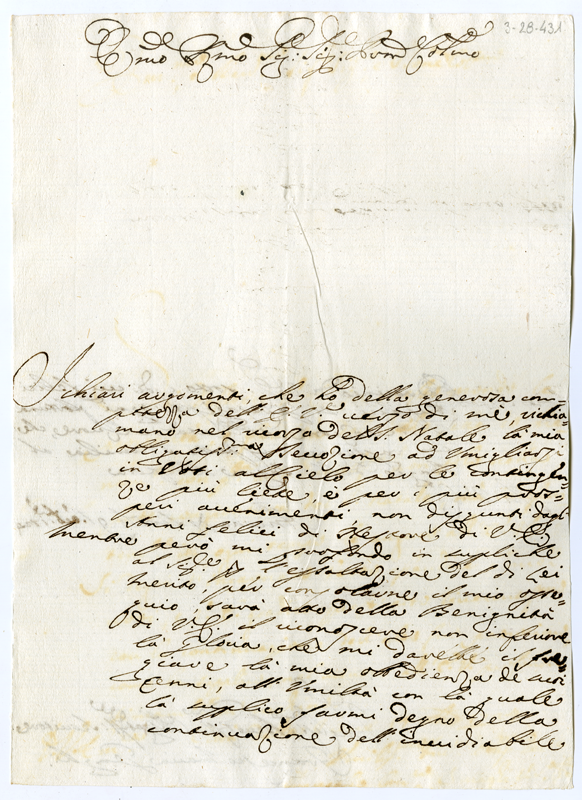 3-28-431
Emo Rmo Sig: Sig: Pron Colmo
I chiari argomenti, che hò della generosa com=
pitezza dell' E.V. verso di me, richia=
mano nel ricorso del S. Natale la mia
obligatiss: devozione ad umigliarsi
in Voti al Cielo per le contingen=
ze più liete, e per i più pros=
peri avvenimenti, non disgiunti dagl'
anni felici di di V.E.
mentre però mi profondo in supliche
al Sig.re per l'essaltazione del di Lei
merito, per consolarne il mio osse=
quio, sarà atto della Benignità
di V.E. il riconoscere non inferiore
la gloria, che mi darebbe il fre=
giare la mia obbedienza de' suoi
Cenni, all' Umiltà con la quale
la supplico farmi degno della
continuazione dell' invidiabile